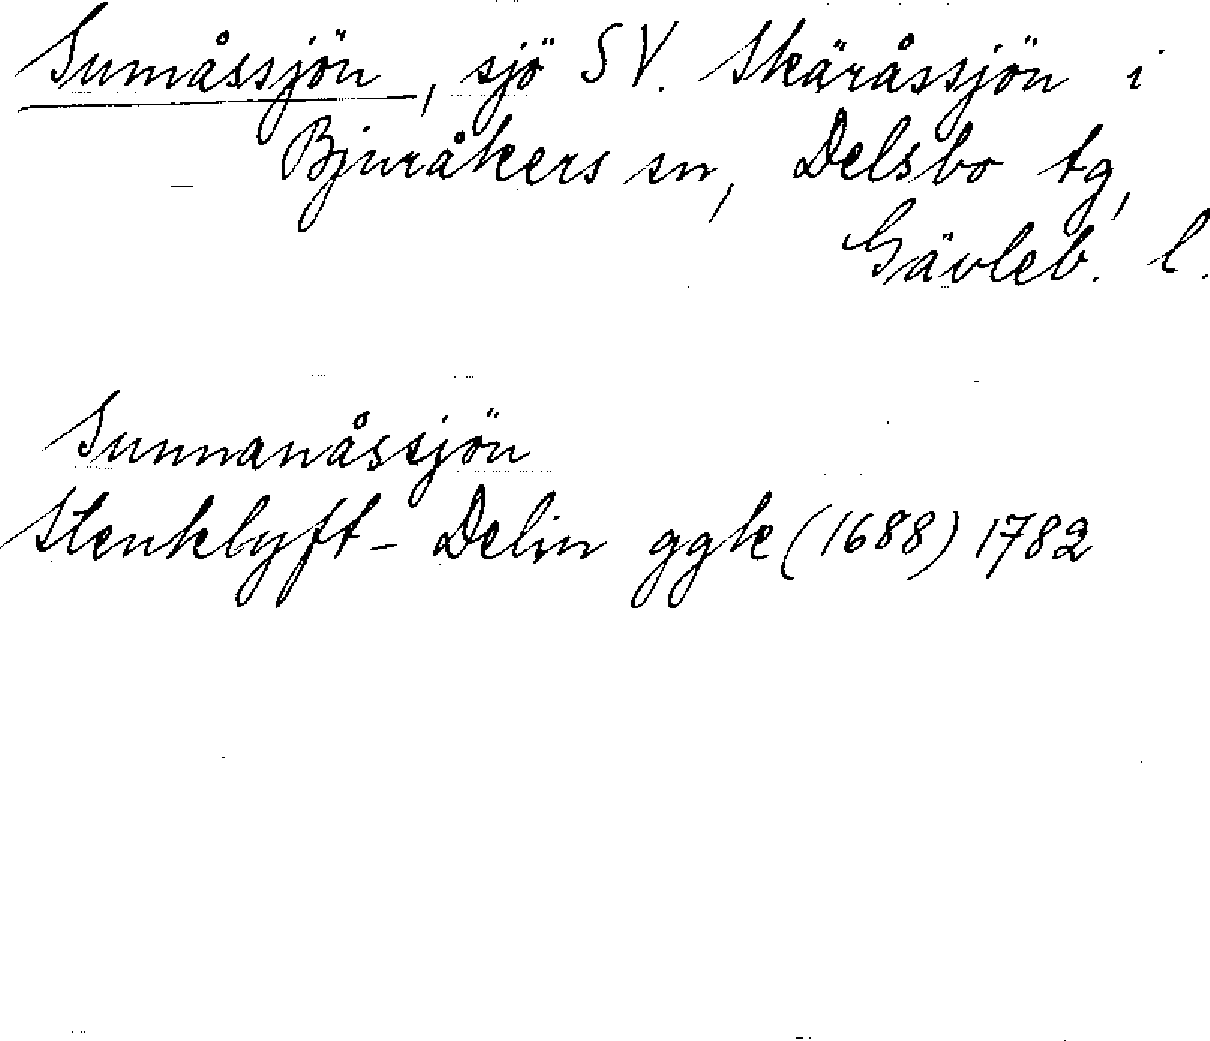 Sumåssjön, sjö SV. Skäråssjön i
Bjuråkers sn, Delsbo tg,
Gävleb. l.
Sunnanåssjön
Stenklyft - Delin ggk (1688) 1782